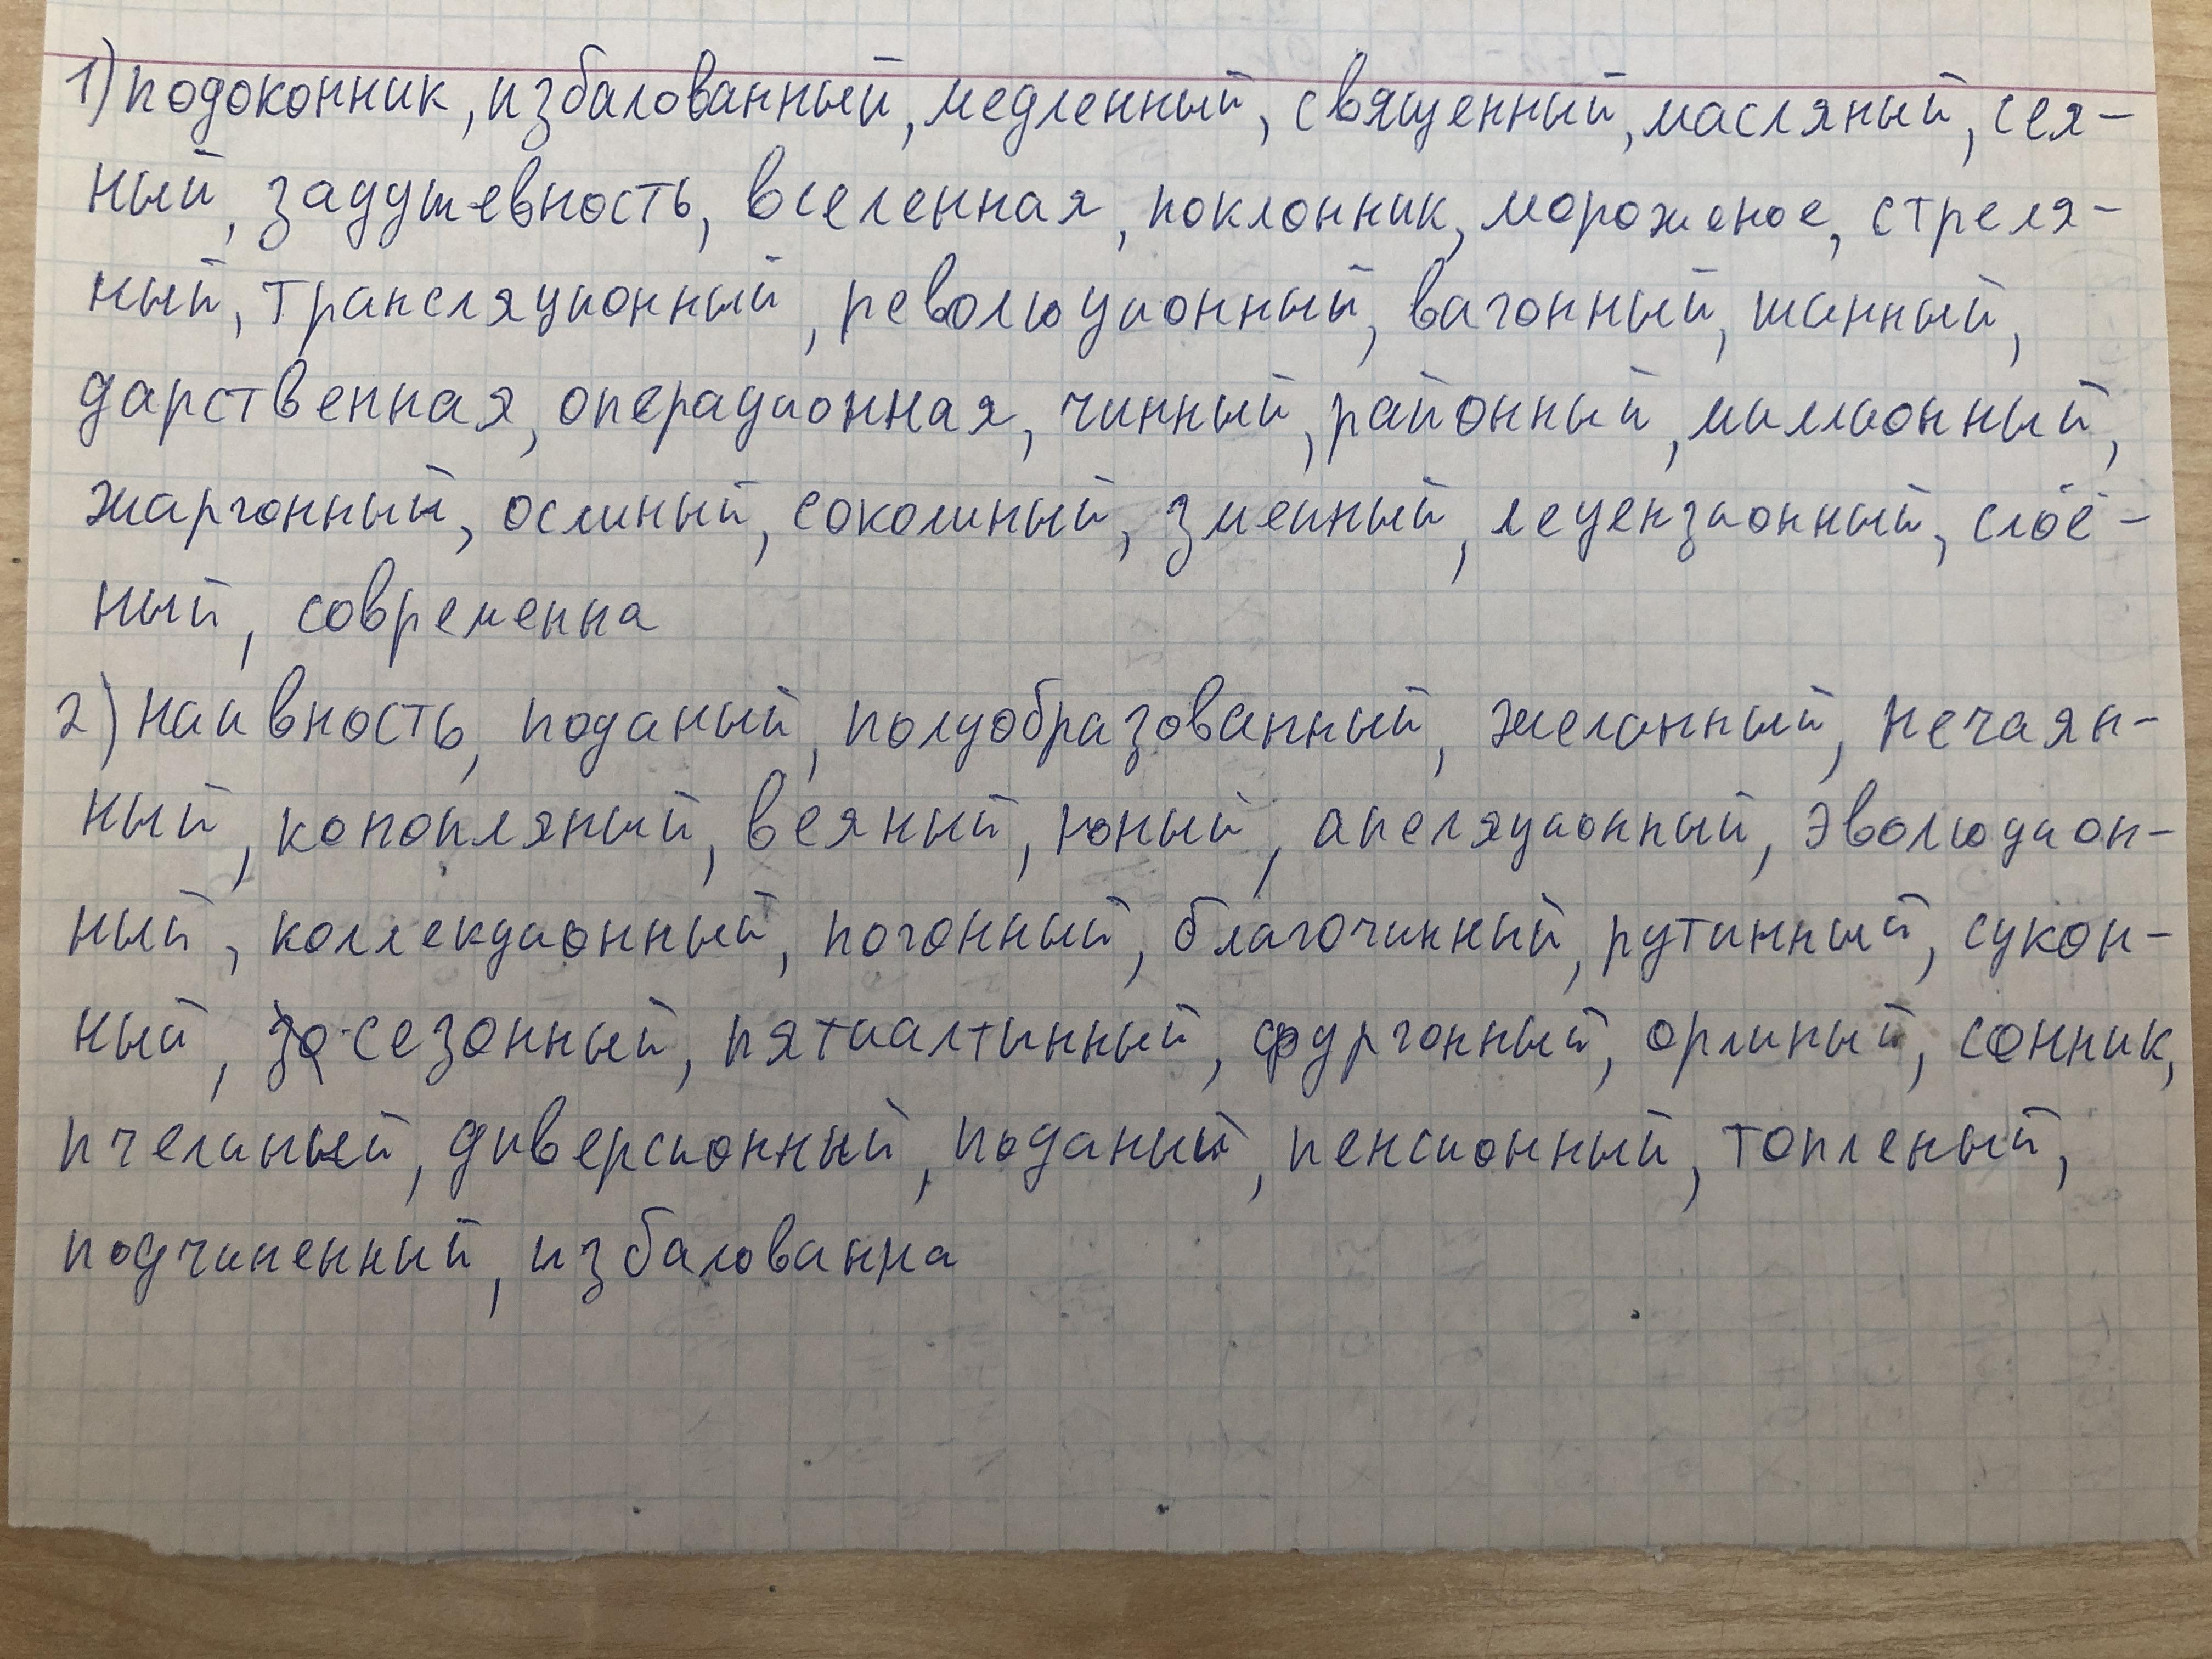 1) подоконник, избалованный, медленный, священный, масляный, сея-
ный, задушевность, вселенная, поклонник, мороженое, стреля-
ный, трансляционный, революционный, вагонный, шанный,
дарственная, операционная, чинный, районный, миллионный,
жаргонный, ослиный, соколиный, змеиный, лецензионный, слоё-
ный, современна
2) наивность, поданый, полуобразованный, желанный, нечаян-
ный, конопляный, веяный, юный, апеляционный, эволюцион-
ный, коллекционный, погонный, благочинный, рутинный, сукон-
ный, сезонный, пятиалтынный, фургонный, орлиный, сонник,
пчелиный, диверсионный, поданый, пенсионный, топленый,
подчиненный, избалованна